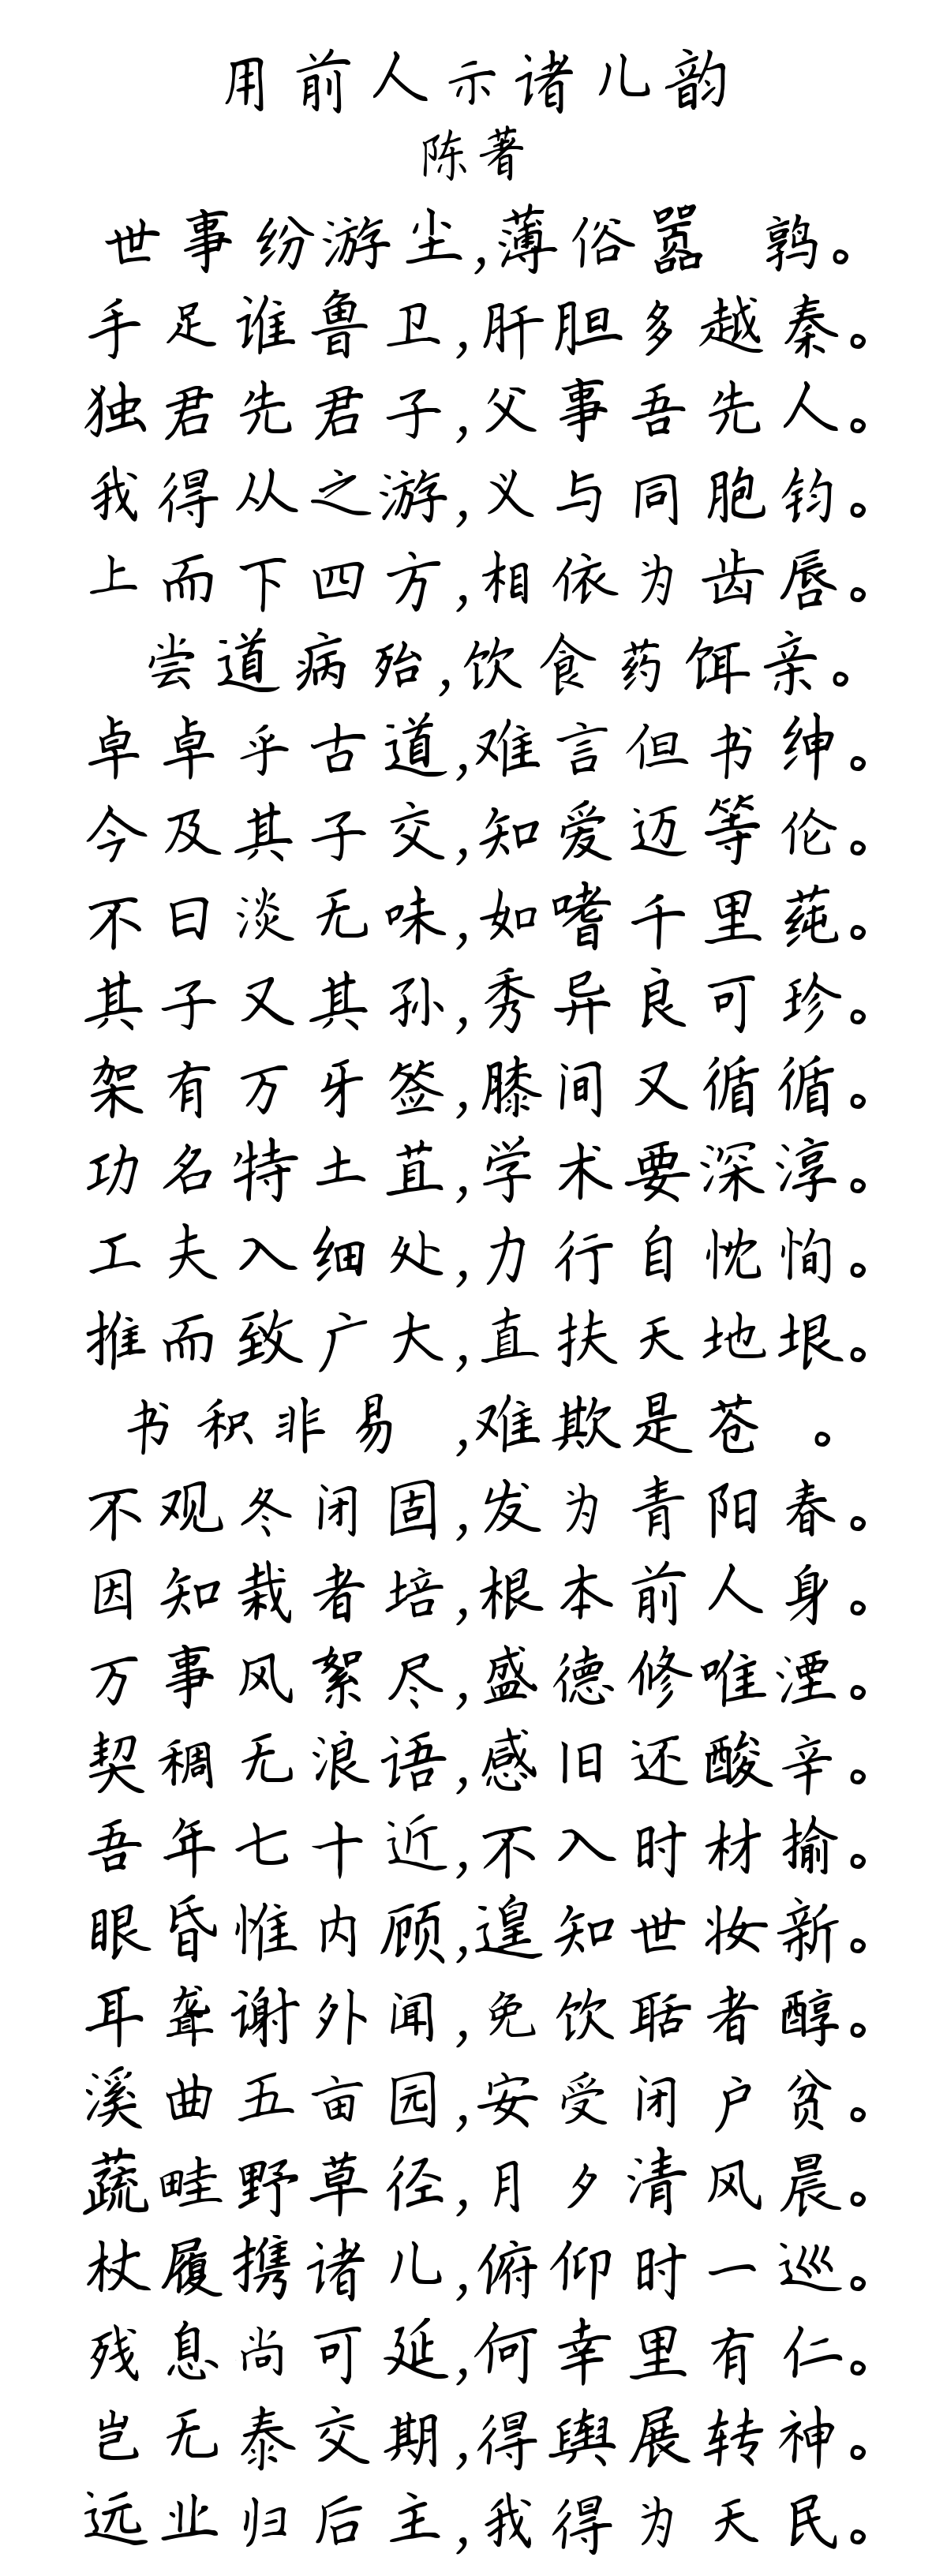 用前人示诸儿韵
陈著
世事纷游尘,薄俗嚣 鹑。
手足谁鲁卫,肝胆多越秦。
独君先君子,父事吾先人。
我得从之游,义与同胞钧。
上而下四方,相依为齿唇。
尝道病殆,饮食药饵亲。
卓卓乎古道,难言但书绅。
今及其子交,知爱迈等伦。
不曰淡无味,如嗜千里莼。
其子又其孙,秀异良可珍。
架有万牙签,膝间又循循。
功名特土苴,学术要深淳。
工夫入细处,力行自忱恂。
推而致广大,直扶天地垠。
书积非易 ,难欺是苍 。
不观冬闭固,发为青阳春。
因知栽者培,根本前人身。
万事风絮尽,盛德修唯湮。
契稠无浪语,感旧还酸辛。
吾年七十近,不入时材揄。
眼昏惟内顾,遑知世妆新。
耳聋谢外闻,免饮聒者醇。
溪曲五亩园,安受闭户贫。
蔬畦野草径,月夕清风晨。
杖履携诸儿,俯仰时一巡。
残息尚可延,何幸里有仁。
岂无泰交期,得舆展转神。
远业归后主,我得为天民。